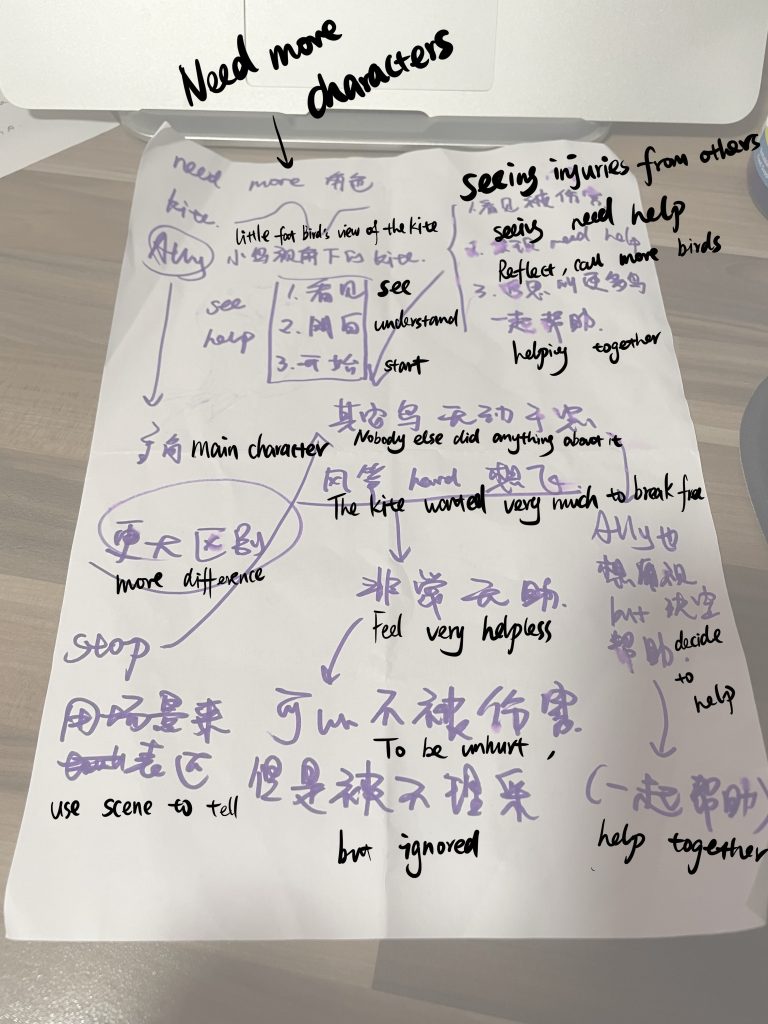 Need more
characters
need more 角色
kite.
Ally
little fat bird's view of the kite
小鸟视角下的 kite.
see
help
1. 看见 see
2. 明白 understand
3. 开始 start
seeing injuries from others
1. 看见被伤害
seeing need help
2. need help
Reflect, call more birds
3. 反思 叫更多鸟
一起帮助.
helping together
主角 main character
其它鸟无动于衷
Nobody else did anything about it
风筝 hard 想飞
The kite wanted very much to break free
更大区别
more difference
非常无助.
Feel very helpless
Ally也
想
but 决定
帮助. decide
to
help
stop
用场景来
表达
use scene to tell
可以不被伤害
To be unhurt,
但是被不理采
but ignored
(一起帮助)
help together